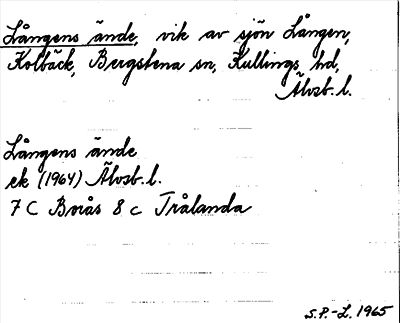 Långens ände, vik av sjön Lången,
Kolbäck, Bergstena sn, Kullings hd,
Älvsb. l.
Långens ände
ek (1964) Älvsb. l.
7 C Borås 8 c Trålanda
S.P.-L. 1965